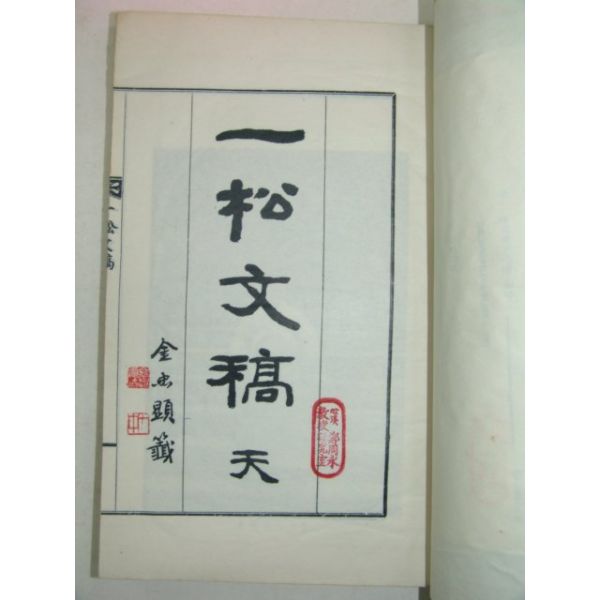 一松文稿 天
金忠顯籤
一松文稿